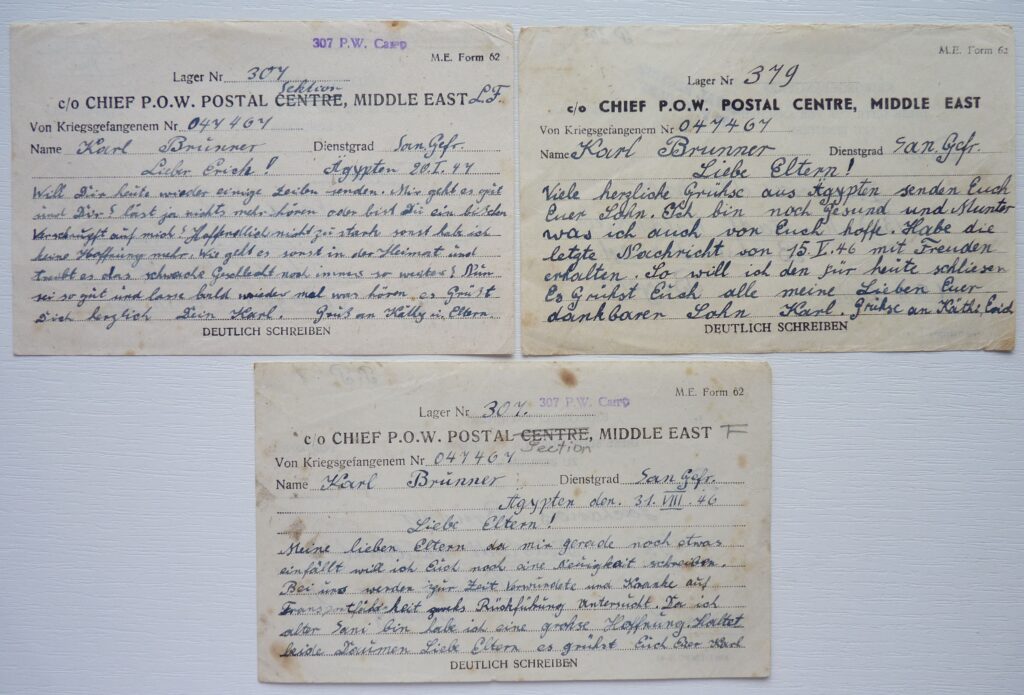 307 P.W. Camp
M.E. Form 62
Lager Nr 307
Sektion
c/o CHIEF P.O.W. POSTAL CENTRE, MIDDLE EAST L.F.
Von Kriegsgefangenem Nr 047467
Name Karl Brunner Dienstgrad San. Gefr.
Lieber Erich! Ägypten 20.I.47
Will Dir heute wieder einige Zeilen senden. Mir geht es gut
und Dir? läst ja nichts mehr hören oder bist Du ein bischen
verschnupft auf mich? Hoffendlich nicht zu stark sonst hab ich
keine Hoffnung mehr. Wie geht es sonst in der Heimat und
treibt es das schwache Geschlecht noch immer so weiter? Nun
sei so gut und lasse bald wieder mal was hören. es Grüßt
Dich herzlich Dein Karl. Gruß an Kätty u. Eltern.
DEUTLICH SCHREIBEN
M.E. Form 62
Lager Nr 379
c/o CHIEF P.O.W. POSTAL CENTRE, MIDDLE EAST
Von Kriegsgefangenem Nr 047467
Name Karl Brunner Dienstgrad San. Gefr.
Liebe Eltern!
Viele herzliche Grühse aus Ägypten senden Euch
Euer Sohn. Ich bin noch Gesund und Munter
was ich auch von Euch hoffe. Habe die
letzte Nachricht von 15.V.46 mit Freuden
erhalten. So will ich den für heute schliesen
Es Grühst Euch alle meine Lieben Euer
dankbarer Sohn Karl. Grühse an Käthi, Erich
DEUTLICH SCHREIBEN
M.E. Form 62
307 P.W. Camp
Lager Nr 307.
c/o CHIEF P.O.W. POSTAL CENTRE, MIDDLE EAST F
Section
Von Kriegsgefangenem Nr 047467
Name Karl Brunner Dienstgrad San. Gefr.
Ägypten den. 31. VIII. 46
Liebe Eltern!
Meine lieben Eltern da mir gerade noch etwas
einfällt will ich Euch noch eine Neuigkeit schreiben.
Bei uns werden zur Zeit Verwundete und Kranke auf
Transportfähigkeit zweks Rückführung Untersucht. Da ich
alter Sani bin habe ich eine grohse Hoffnung. Haltet
beide Daumen Liebe Eltern es grühst Euch Euer Karl
DEUTLICH SCHREIBEN